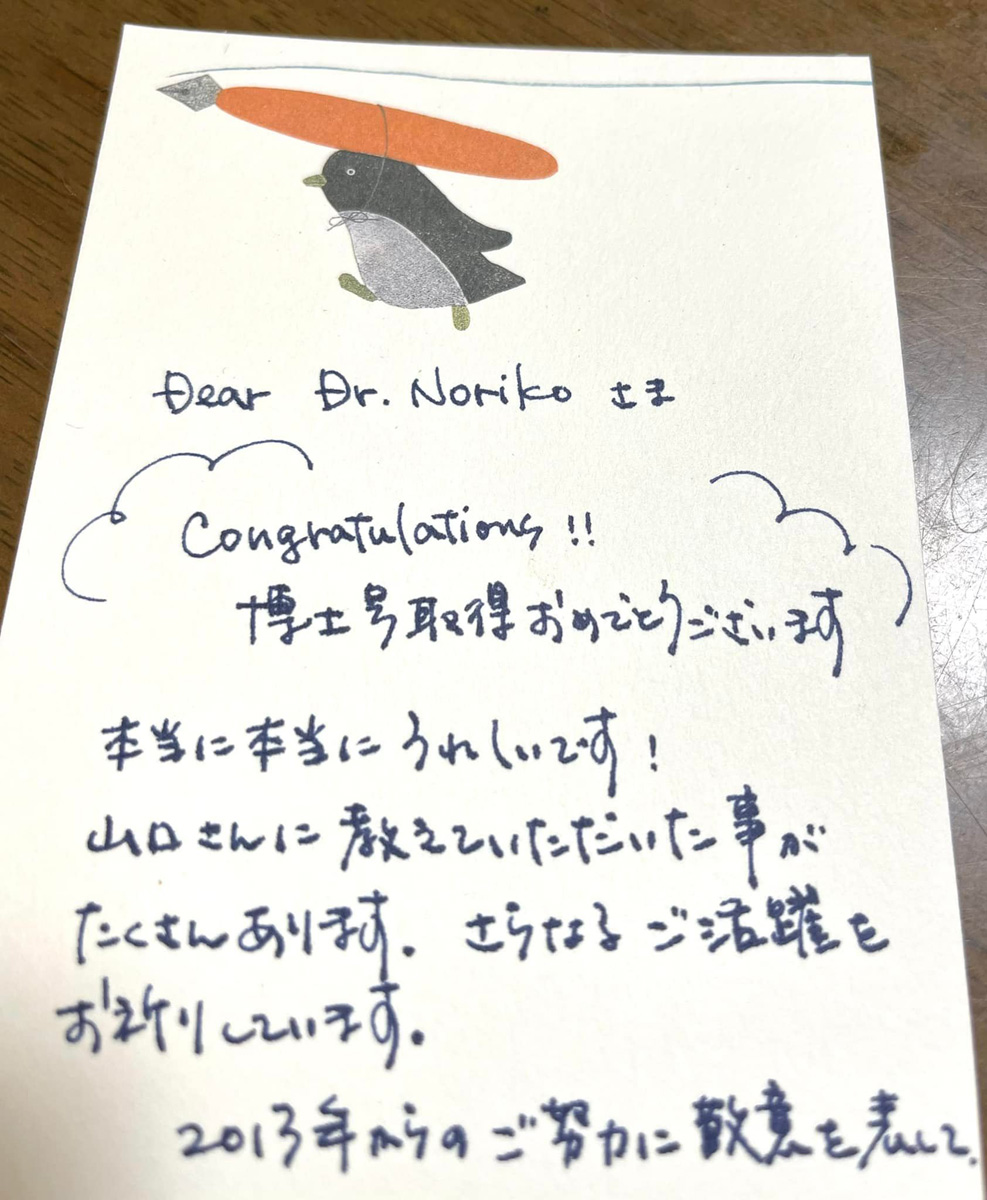 Dear Dr. Noriko さま
Congratulations!!
博士号取得おめでとうございます
本当に本当にうれしいです!
山口さんに教えていただいた事が
たくさんあります。さらなるご活躍を
お祈りしています。
2013年からのご努力に敬意を表して.